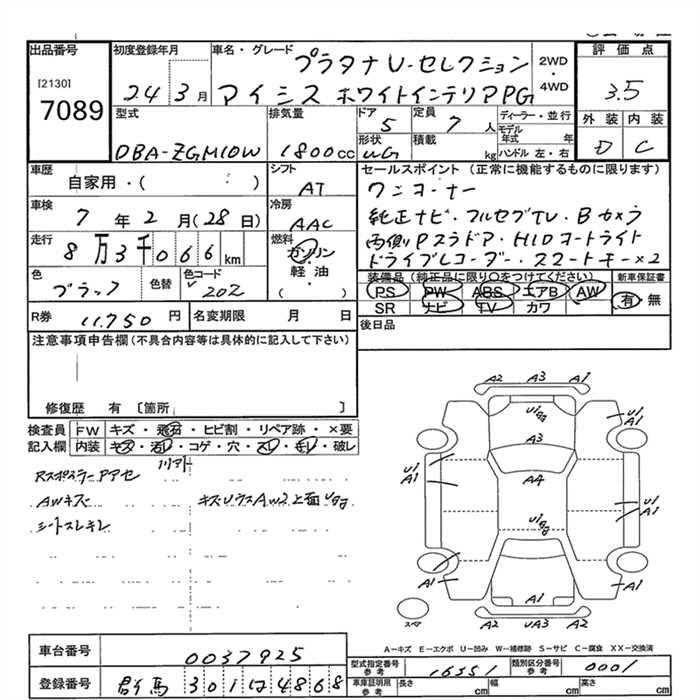 出品番号
[2130]
7089
初度登録年月
24 3月
車名・グレード
プラタナ U-セレクション
アイシス ホワイトインテリア PG
2WD
・
4WD
評価点
3.5
外装 内装
D C
型式
DBA-ZGM10W
排気量
1800cc
ドア
5
定員
7人
形状
WG
積載
kg
ディーラー・並行
モデル年式 年
ハンドル 左・右
車歴
自家用・( )
シフト
AT
車検
7年2月(28日)
冷房
AAC
走行
8万3千066km
燃料
ガソリン
・
軽油
( )
色
ブラック
色替
色コード
202
R券
11.750円
名変期限 月 日
セールスポイント(正常に機能するものに限ります)
ワンオーナー
純正ナビ・フルセグTV・Bカメラ
両側Pスラドア・HIDオートライト
ドライブレコーダー・スマートキー×2
装備品(純正品に限り○をつけてください)
PS PW ABS エアB AW
SR ナビ TV カワ
新車保証書
有・無
後日品
注意事項申告欄(不具合内容等は具体的に記入して下さい)
修復歴 有〔箇所 〕
検査員
記入欄
FW キズ・飛石・ヒビ割・リペア跡・×要
内装 キズ・汚レ・コゲ・穴・スレ・キレ・破レ
AWキズ
シートスレキレ
A2 A3 A1
U1
A3
A4
U1
A1
U1
A1
U1
A1
A1
A1
A1
A2 UA3 A2
スペア
A-キズ E-エクボ U-凹み W-補修跡 S-サビ C-腐食 XX-交換済
車台番号
0037925
登録番号
群馬 301 は 4868
型式指定番号
参考
16351
類別区分番号
参考
0001
車庫証明用
参考
長さ cm 幅 cm 高さ cm